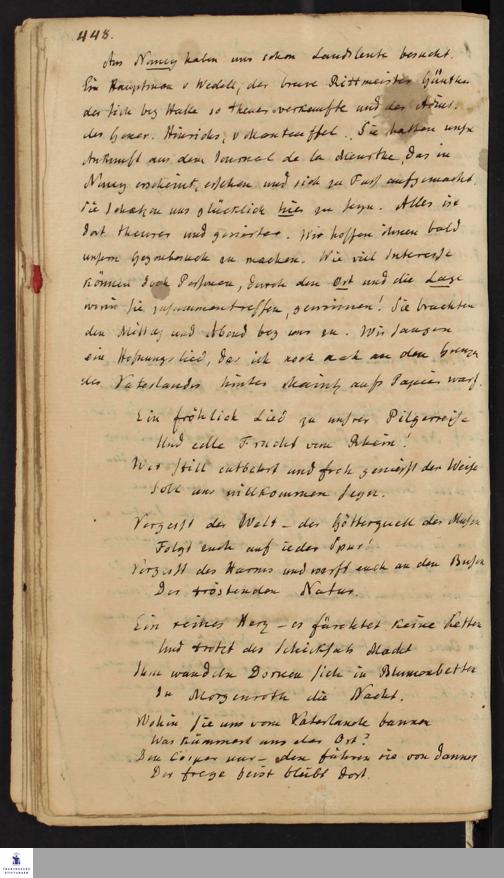 448.
Aus Nancy haben uns schon Landsleute besucht.
Ein Hauptmann v Wedell, der brave Rittmeister Günther
der sich bey Halle so theuer verkaufte und der
des Gener. Hinrichs, v Manteuffel. Sie hatten unsre
Ankunft aus dem Journal de la Meurthe, das in
Nancy erscheint, ersehen und sich zu Fuß aufgemacht.
Sie schätzen uns glücklich hier zu seyn. Alles ist
dort theurer und genirter. Wir hoffen ihnen bald
unsern Gegenbesuch zu machen. Wie viel Interesse
können doch Personen, durch den Ort und die Lage
worin sie zusammentreffen, gewinnen! Sie brachten
den Mittag und Abend bey uns zu. Wir sangen
ein Hofnungslied, das ich noch an den Grenzen
des Vaterlandes hinter Mainz aufs Papier warf.
Ein fröhlich Lied zu unsrer Pilgerreise
Und edle Frucht vom Rhein!
Wer still entbehrt und froh genießt der Weise
Soll uns willkommen seyn.
Vergeßt der Welt – der Götterquell der Musen
Folgt euch auf jeder Spur!
Vergeßt des Harms und werft euch an den Busen
Der tröstenden Natur.
Ein reines Herz – es fürchtet keine Ketten
Und trotzt des Schicksals Macht
Ihm wandeln Dornen sich in Blumenbetten
In Morgenroth die Nacht.
Wohin sie uns vom Vaterlande bannen
Was kümmert uns der Ort?
Den Cörper nur – den führen sie von dannen
Der freye Geist bleibt dort.
FRANCKESCHE
STIFTUNGEN